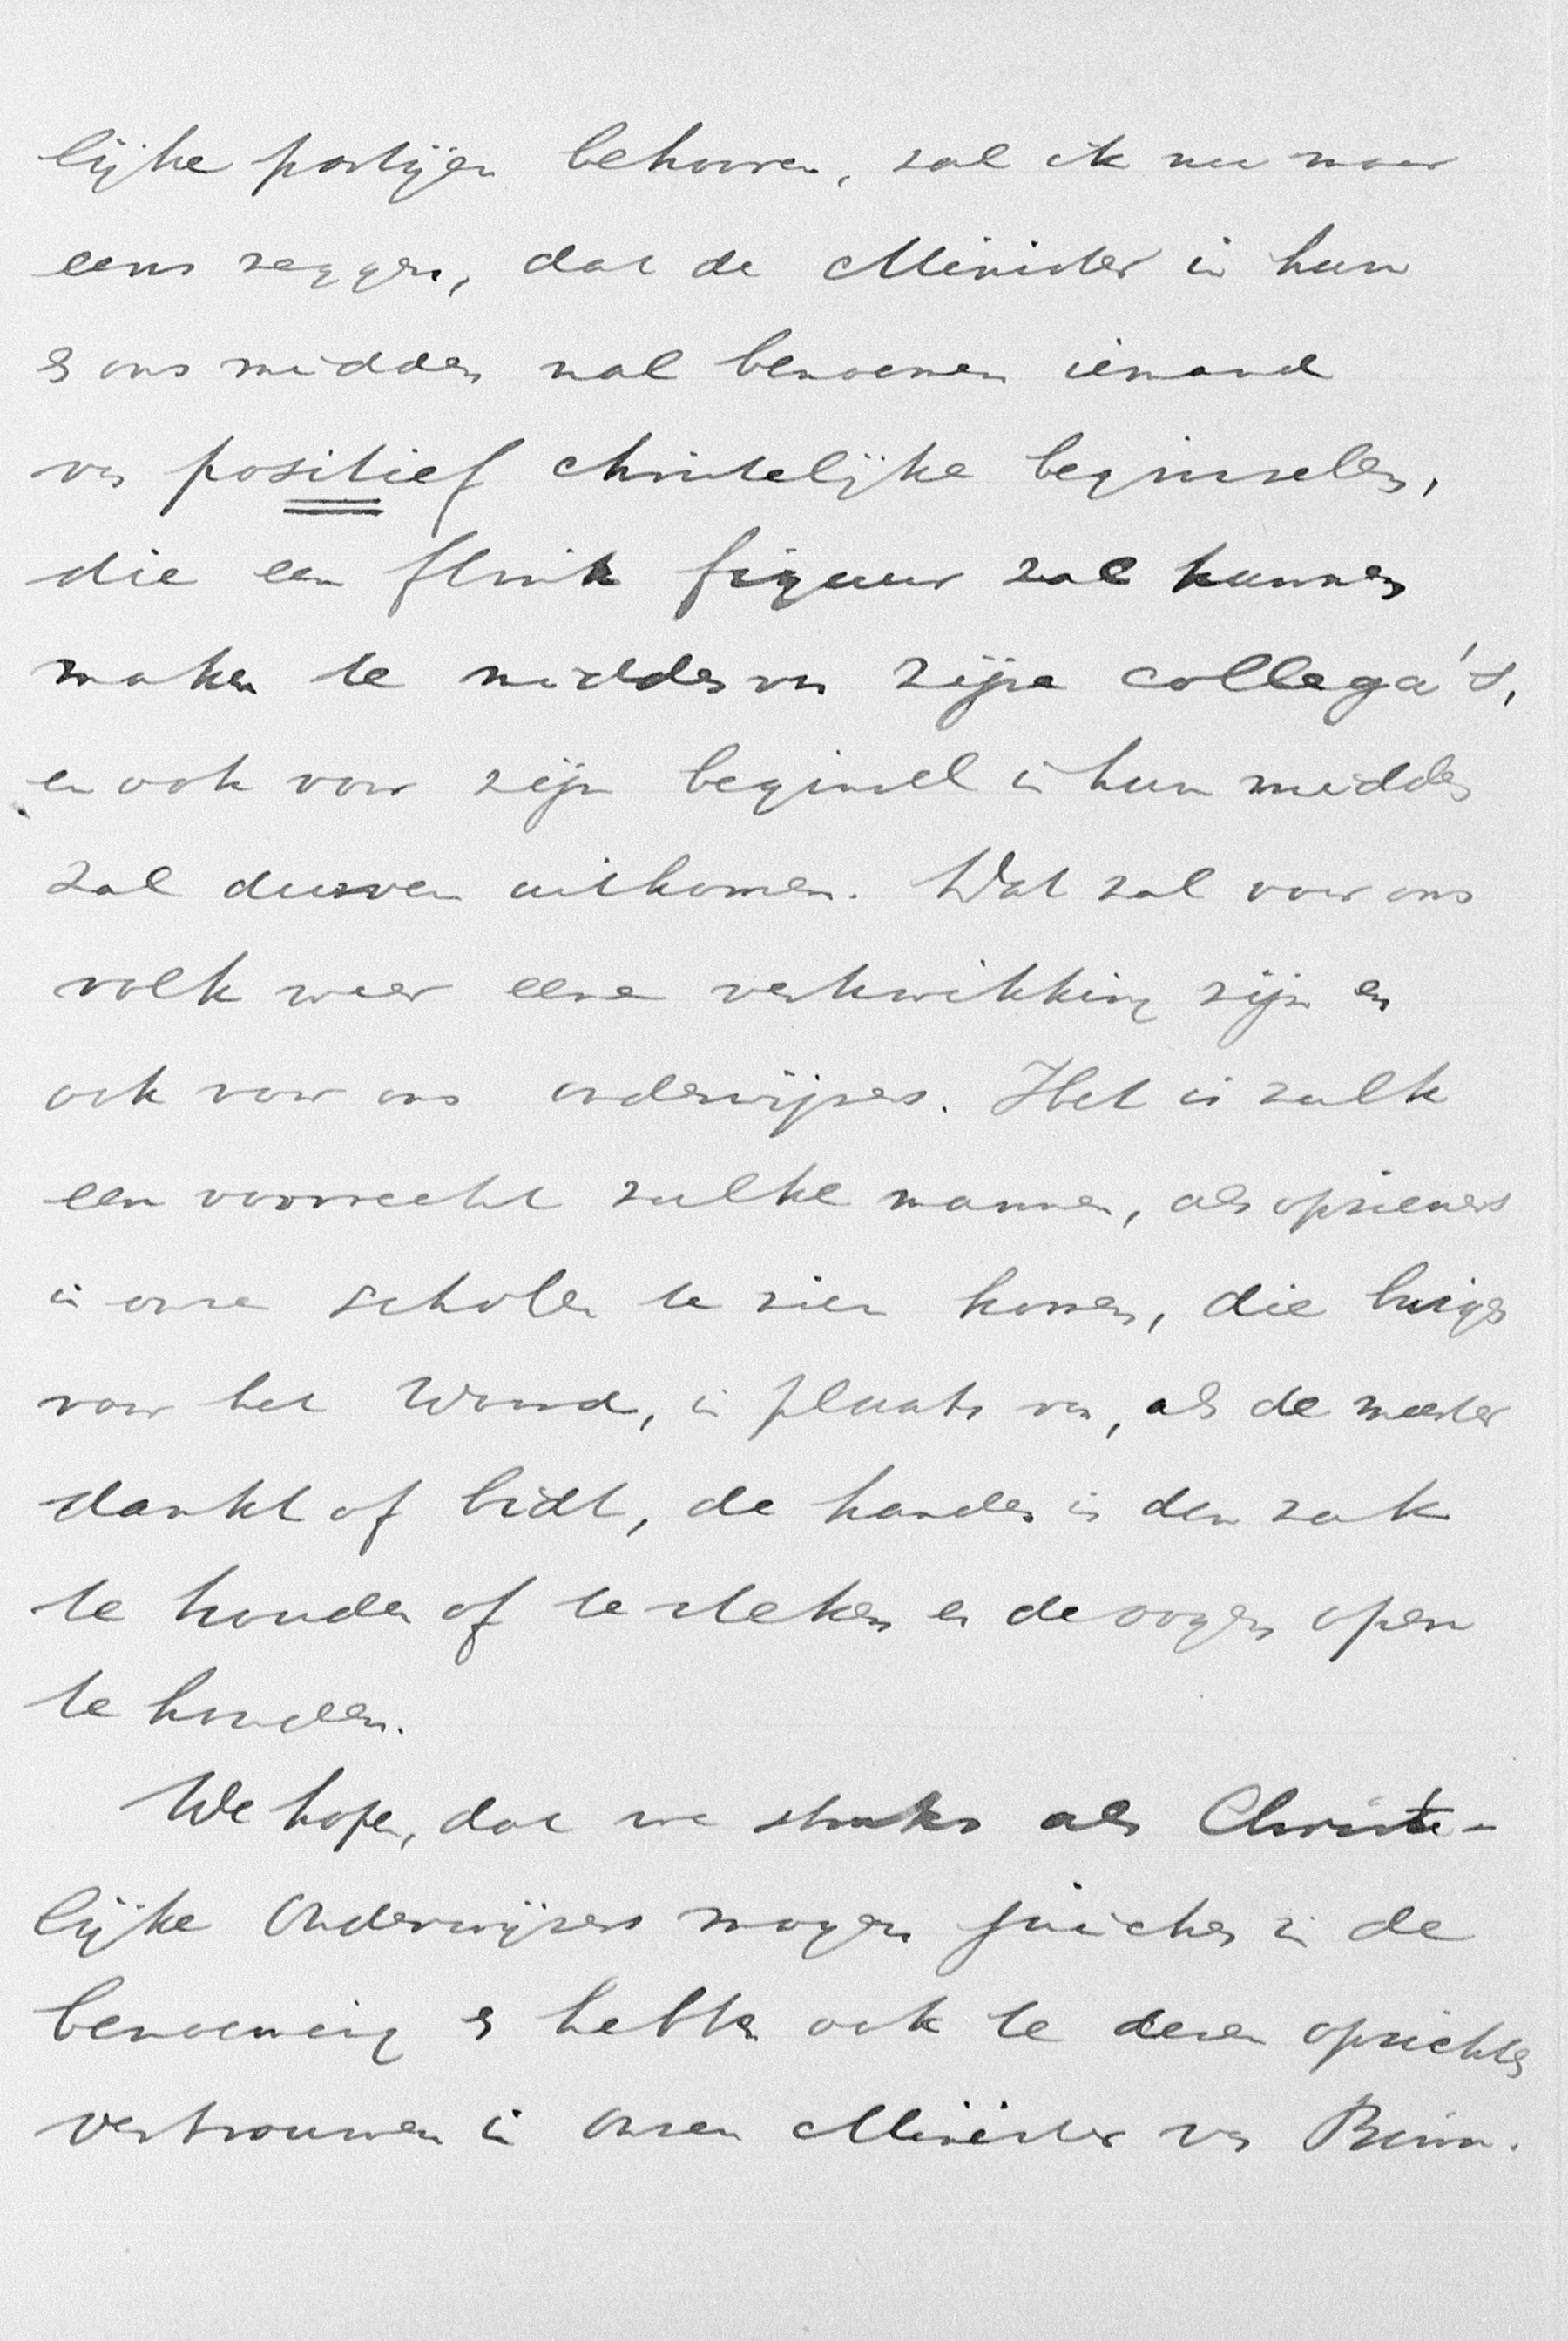 lijke partijen behooren, zal ik nu maar
eens zeggen, dat de Minister in hun
en ons midden zal benoemen iemand
van positief christelijke beginselen,
die een flink figuur zal kunnen
maken te midden van zijne collega's,
en ook voor zijn beginsel in hun midden
zal durven uitkomen. Dat zal voor ons
volk weer eene verkwikking zijn en
ook voor ons onderwijzers. Het is zulk
een voorrecht zulke mannen, als opzieners
in onze scholen te zien komen, die buigen
voor het Woord, in plaats van, als de meester
dankt of bidt, de handen in den zak
te houden of te steken en de oogen open
te houden.
We hopen, dat we straks als Christe-
lijke Onderwijzers mogen juichen in de
benoeming en hebben ook te dezen oprichte
vertrouwen in onzen Minister van Binn.